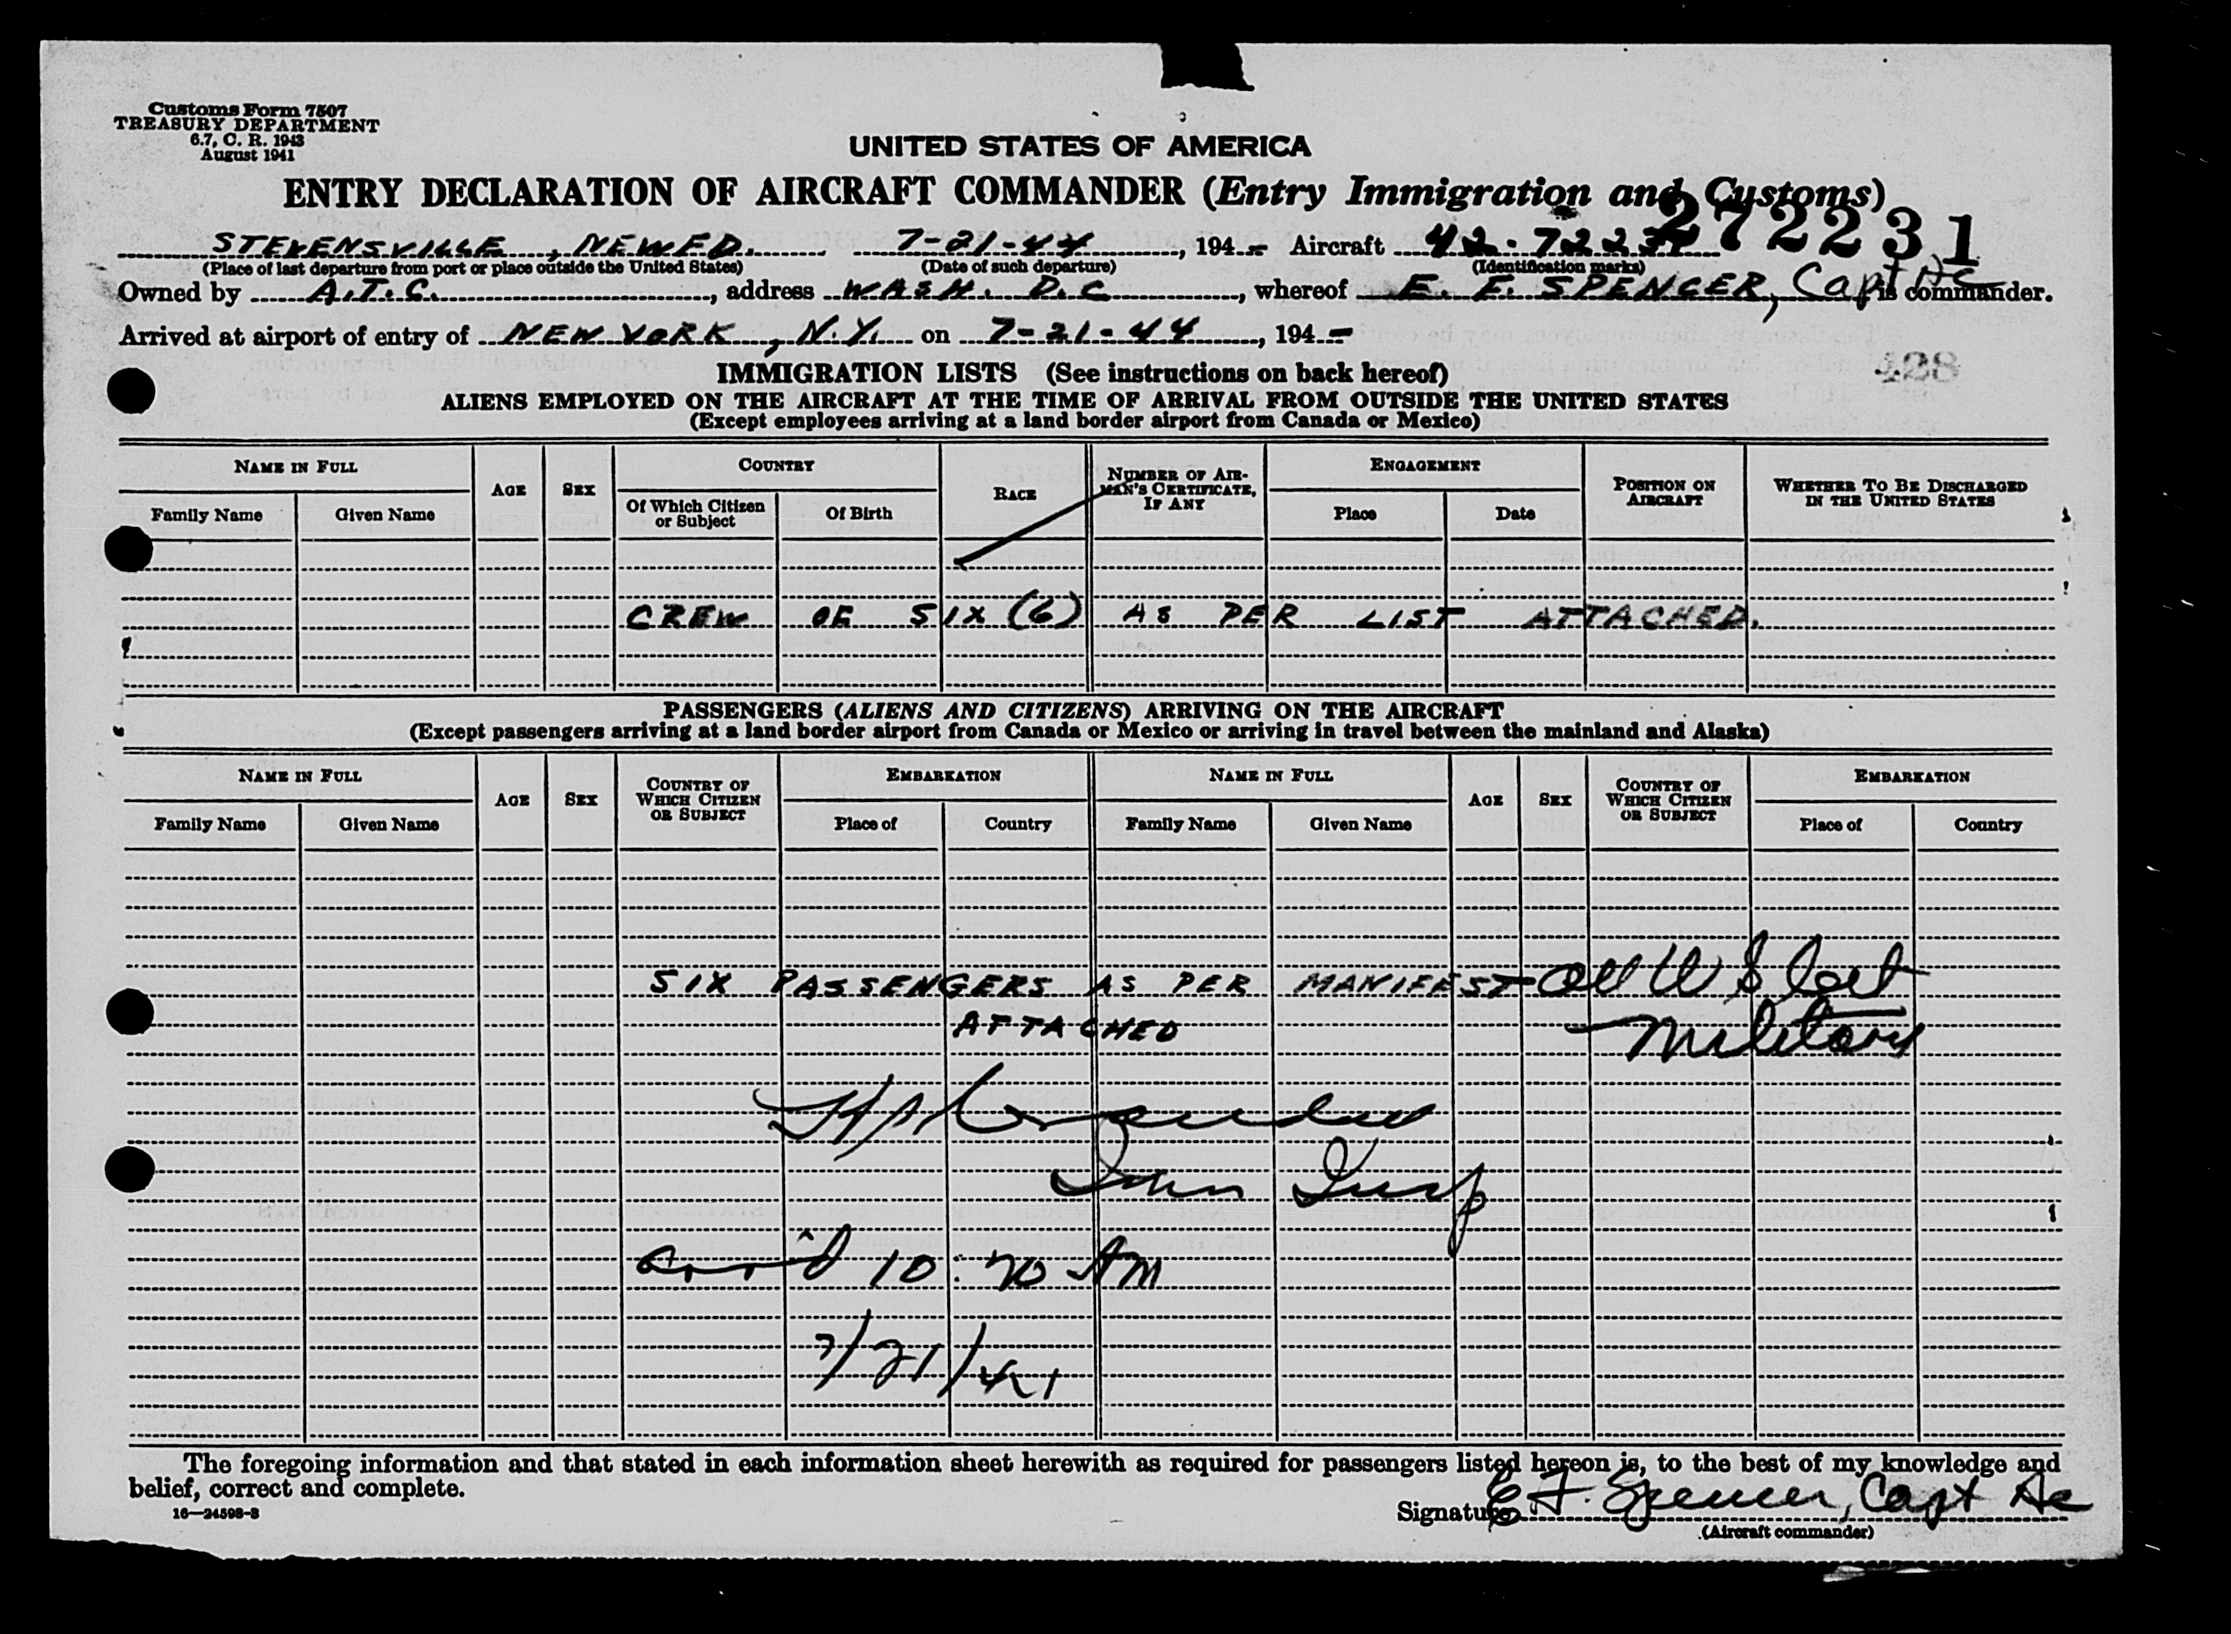 Customs Form 7507
TREASURY DEPARTMENT
6.7, C. R. 1943
August 1941
UNITED STATES OF AMERICA
ENTRY DECLARATION OF AIRCRAFT COMMANDER (Entry Immigration and Customs)
272231
STEVENSVILLE, NEWFD. 7-21-44, 194- Aircraft 42-72231
(Place of last departure from port or place outside the United States) (Date of such departure) (Identification marks)
Owned by A.T.C., address WASH. D.C., whereof E. F. SPENCER, Capt AC is commander.
Arrived at airport of entry of NEW YORK, N.Y. on 7-21-44, 194-
428
IMMIGRATION LISTS (See instructions on back hereof)
ALIENS EMPLOYED ON THE AIRCRAFT AT THE TIME OF ARRIVAL FROM OUTSIDE THE UNITED STATES
(Except employees arriving at a land border airport from Canada or Mexico)
NAME IN FULL AGE SEX COUNTRY RACE NUMBER OF AIRMAN'S CERTIFICATE, IF ANY ENGAGEMENT POSITION ON AIRCRAFT WHETHER TO BE DISCHARGED IN THE UNITED STATES
Family Name Given Name Of Which Citizen or Subject Of Birth Place Date
CREW OF SIX (6) AS PER LIST ATTACHED.
PASSENGERS (ALIENS AND CITIZENS) ARRIVING ON THE AIRCRAFT
(Except passengers arriving at a land border airport from Canada or Mexico or arriving in travel between the mainland and Alaska)
NAME IN FULL AGE SEX COUNTRY OF WHICH CITIZEN OR SUBJECT EMBARKATION NAME IN FULL AGE SEX COUNTRY OF WHICH CITIZEN OR SUBJECT EMBARKATION
Family Name Given Name Place of Country Family Name Given Name Place of Country
SIX PASSENGERS AS PER MANIFEST - All U S
ATTACHED Military
Insp
Arr'd 10:20 AM
7/21/44
The foregoing information and that stated in each information sheet herewith as required for passengers listed hereon is, to the best of my knowledge and
belief, correct and complete.
16—24598-3
Signature E F. Spencer, Capt Ac
(Aircraft commander)